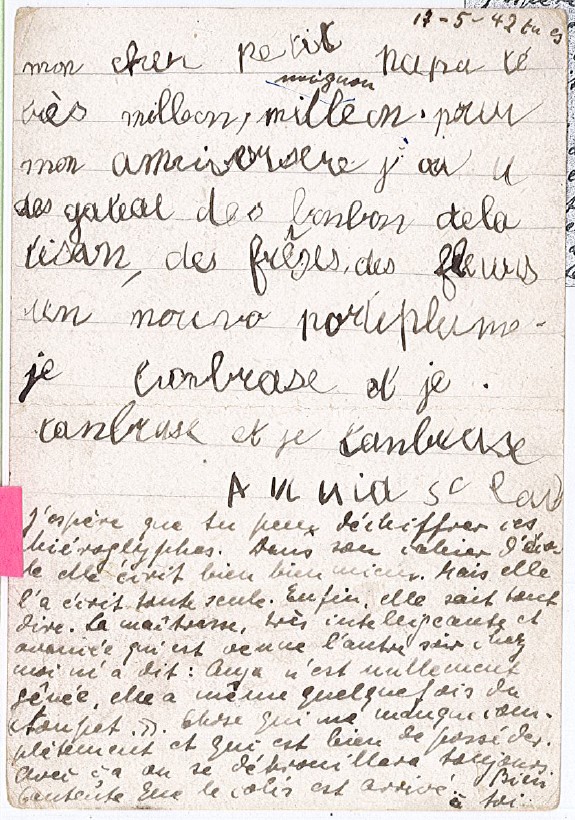 17-5-42 tu es
mon cher petit papa té
mignon
très milleon, milleon. pour
mon amniversere j'ai u
des gateal des bonbon dela
tisan, des frêzes, des fleurs
un nouvo porteplume -
je tanbrase et je .
tanbrase et je tanbrase
Annia
J'espère que tu peux déchiffrer ces
hiéroglyphes. Dans son cahier d'éco-
le elle écrit bien bien mieux. Mais elle
l'a écrit toute seule. Enfin, elle sait tout
dire. La maîtresse, très intelligente et
avancée qui est venue l'autre soir chez
moi m'a dit : Anya n'est nullement
gênée, elle a même quelquefois du
toupet. Chose qui me manque com-
plètement et qui est bien de posséder.
Avec ça on se débrouillera toujours. Bien
contente que le colis est arrivé
à toi